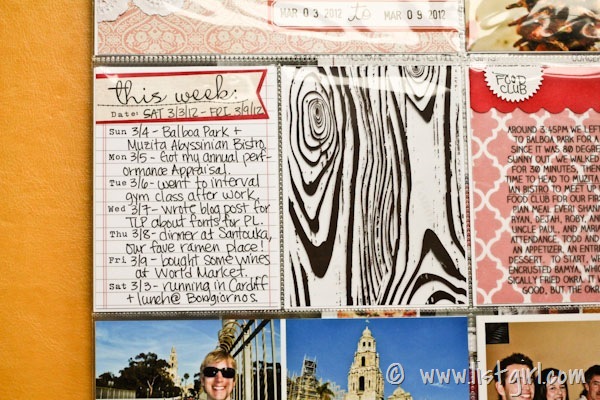 MAR 03 2012 to MAR 09 2012
this week:
Date: SAT 3/3/12 - FRI 3/9/12
Sun 3/4 - Balboa Park +
Muzita Abyssinian Bistro
Mon 3/5 - Got my annual perf-
ormance Appraisal.
Tue 3/6 - went to interval
gym class after work.
Wed 3/7 - wrote blog post for
TLP about fonts for PL.
Thu 3/8 - dinner at Santouka,
our fave ramen place!
Fri 3/9 - bought some
wines at World Market.
Sat 3/3 - running in Cardiff
+ lunch @ Bongiornos.
FOOD
CLUB
AROUND 3:45PM WE LEFT
TO BALBOA PARK FOR A
SINCE IT WAS 80 DEGREE
SUNNY OUT. WE WALKED
FOR 30 MINUTES, THEN
TIME TO HEAD TO MUZITA
IAN BISTRO TO MEET UP
FOOD CLUB FOR OUR FIRS
PIAN MEAL EVER! SHAN
RYAN, DEJAH, ROBY, AND
UNCLE PAUL, AND MARIA
ATTENDANCE. TODD AND
AN APPETIZER, AN ENTRE
DESSERT. TO START, WE
ENCRUSTED BAMYA, WHIC
SICALLY FRIED OKRA. IT W
GOOD, BUT THE OK
© www.listgirl.com